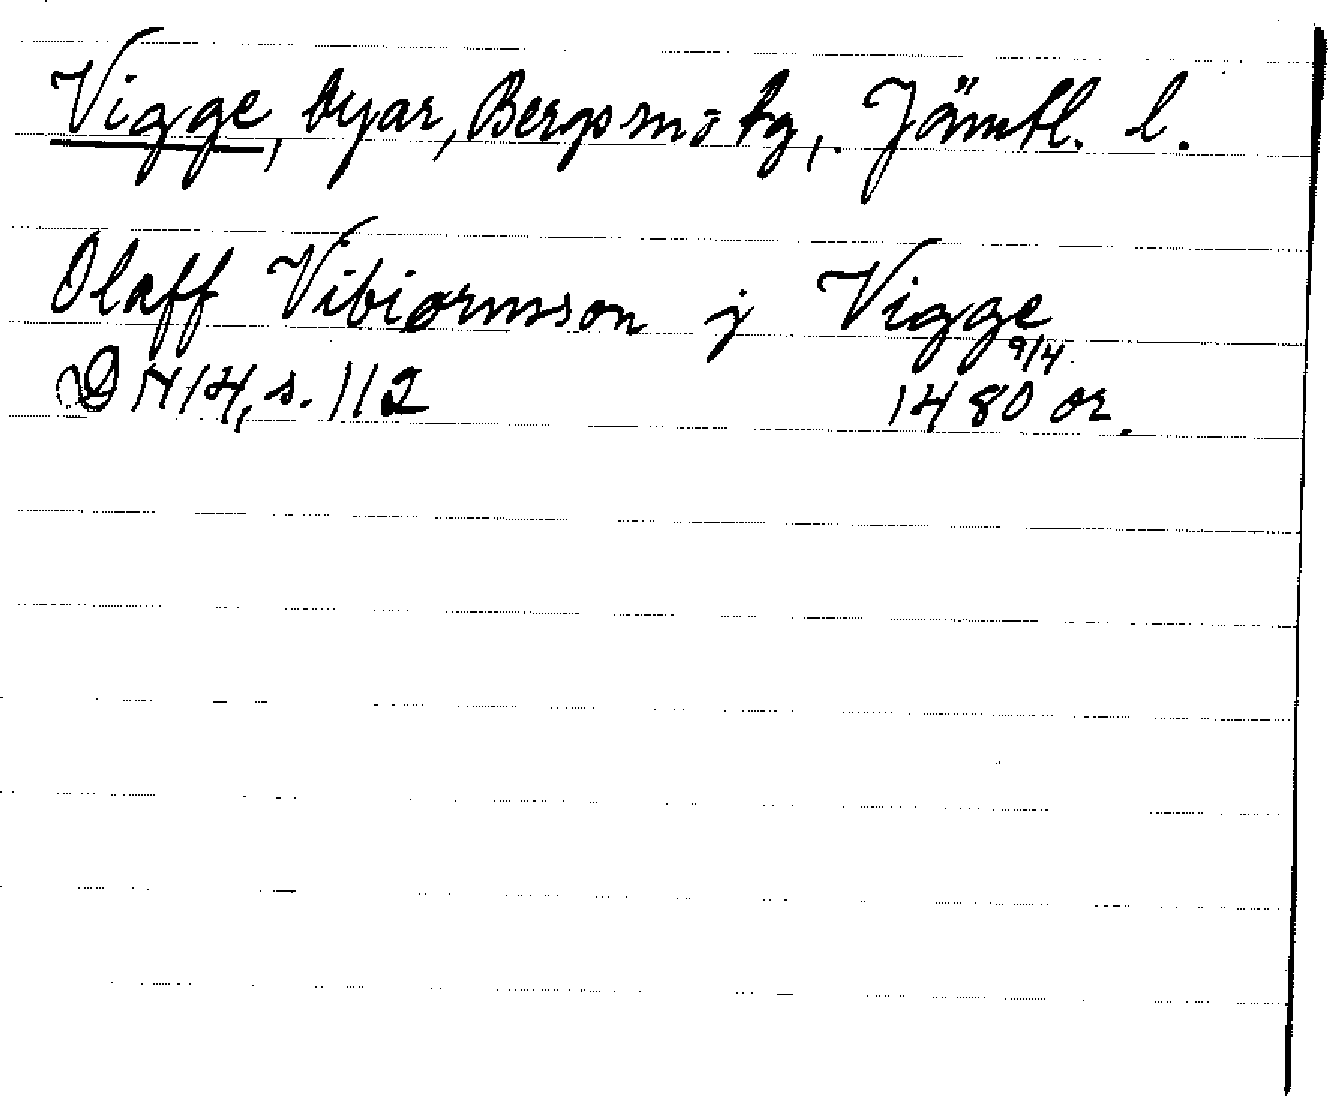 Vigge, byar, Bergs sn o tg, Jämtl. l.
Olaff Vibiørnsson j Vigge
9/4
DN 14, s. 112 1480 or.